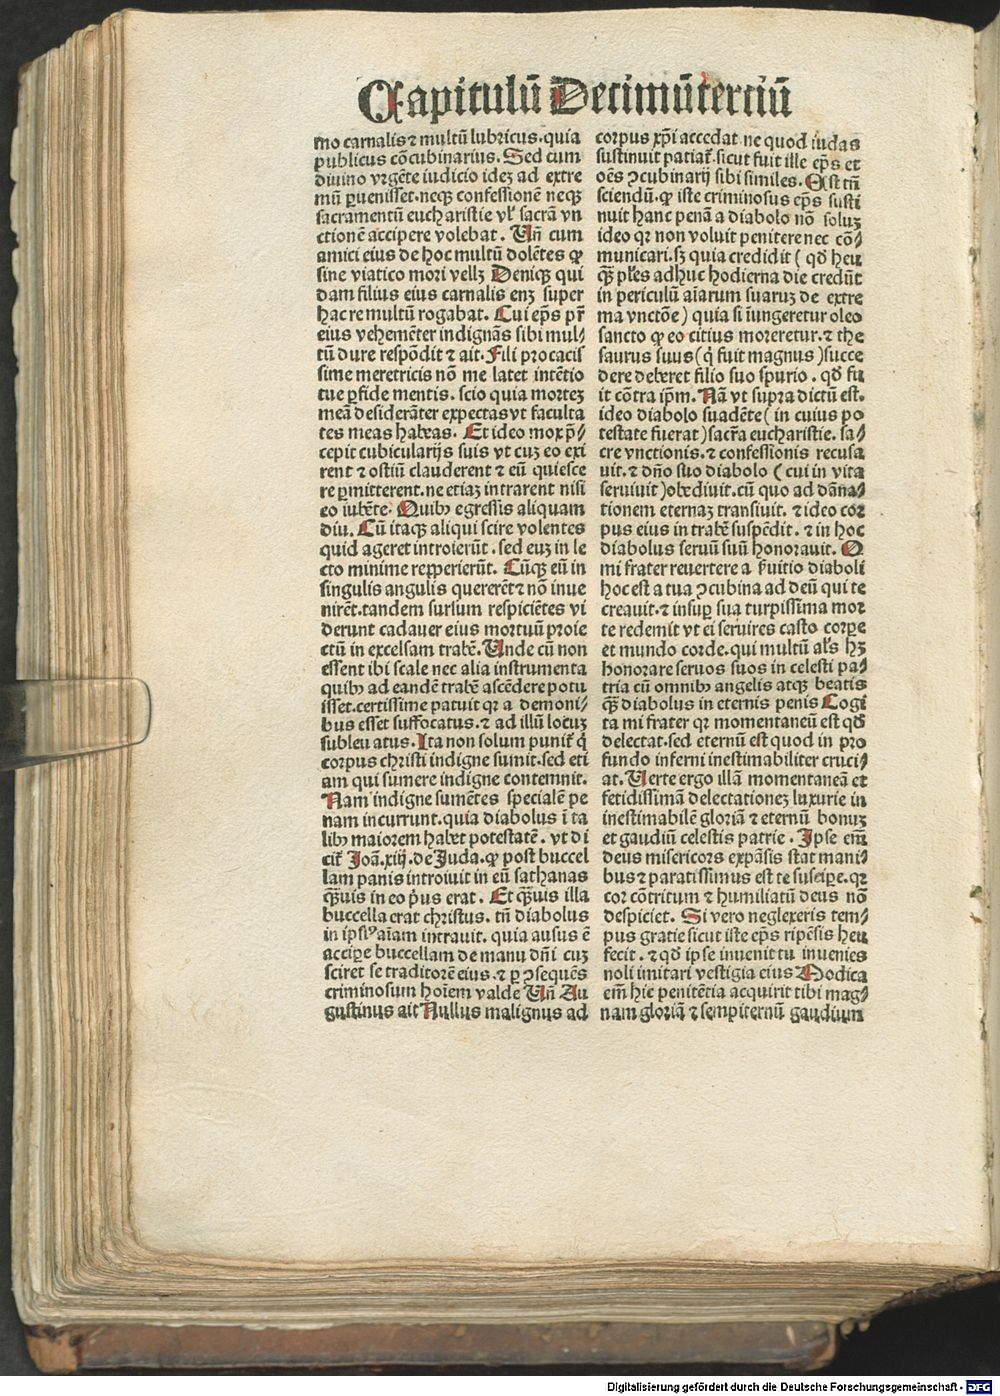 Capitulū Decimūterciū
mo carnalis ⁊ multū lubricus. quia
publicus cōcubinarius. Sed cum
diuino vrgēte iudicio ideȝ ad extre
mū ꝑuenisset. neqȝ confessionē neqȝ
sacramentū eucharistie vl' sacrā vn
ctionē accipere volebat. Uñ cum
amici eius de hoc multū dolētes ꝙ
sine viatico mori vellȝ Deniqȝ qui
dam filius eius carnalis enȝ super
hac re multū rogabat. Cui ep̄s pr̄
eius vehemēter indignās sibi mul⸗
tū dure respōdit ⁊ ait. Fili procacis
sime meretricis nō me latet intētio
tue ꝑfide mentis. scio quia morteȝ
meā desiderāter expectas vt faculta
tes meas habeas. Et ideo mox p̄⸗
cepit cubicularijs suis vt cuȝ eo exi
rent ⁊ ostiū clauderent ⁊ eū quiesce
re ꝑmitterent. ne etiaȝ intrarent nisi
eo iubēte. Quibꝰ egressis aliquam
diu. Cū itaqȝ aliqui scire volentes
quid ageret introierūt. sed euȝ in le
cto minime repperierūt. Cūqȝ eū in
singulis angulis quererēt ⁊ nō inue
nirēt. tandem sursum respiciētes vi
derunt cadauer eius mortuū proie
ctū in excelsam trabē. Unde cū non
essent ibi scale nec alia instrumenta
quibꝰ ad eandē trabē ascēdere potu
isset. certissime patuit qr a demoni⸗
bus esset suffocatus. ⁊ ad illū locuȝ
subleuatus. Ita non solum punit̄ q̇
corpus christi indigne sumit. sed eti
am qui sumere indigne contemnit.
Nam indigne sumētes specialē pe
nam incurrunt. quia diabolus ī ta
libꝰ maiorem habet potestatē. vt di
cit̄ Joā. xiij. de Juda. ꝙ post buccel
lam panis introiuit in eū sathanas
qȝuis in eo pꝰus erat. Et qȝuis illa
buccella erat christus. tñ diabolus
in ipsiꝰ aīam intrauit. quia ausus ē
accipe buccellam de manu dn̄i cuȝ
sciret se traditorē eius. ⁊ ꝑ ꝯsequēs
criminosum hoīem valde Uñ Au
gustinus ait Nullus malignus ad
corpus xp̄i accedat ne quod iudas
sustinuit patiat̄. sicut fuit ille ep̄s et
oēs ꝯcubinarij sibi similes. Est tñ
sciendū. ꝙ iste criminosus ep̄s susti
nuit hanc penā a diabolo nō soluȝ
ideo qr non voluit penitere nec cō⸗
municari. sȝ quia credidit (qđ heu
qȝ pl'es adhuc hodierna die credūt
in periculū aīarum suaruȝ de extre
ma vnctōe) quia si inungeretur oleo
sancto ꝙ eo citius moreretur. ⁊ the
saurus suus (q̇ fuit magnus) succe
dere deberet filio suo spurio. qđ fu
it cōtra ip̄m. Nā vt supra dictū est.
ideo diabolo suadēte (in cuius po
testate fuerat) sacr̄a eucharistie. sa⸗
cre vnctionis. ⁊ confessionis recusa
uit. ⁊ dn̄o suo diabolo (cui in vita
seruiuit) obediuit. cū quo ad dāna⸗
tionem eternaȝ transiuit. ⁊ ideo cor
pus eius in trabē suspēdit. ⁊ in hoc
diabolus seruū suū honorauit. O
mi frater reuertere a s̄uitio diaboli
hoc est a tua ꝯcubina ad deū qui te
creauit. ⁊ insuꝑ sua turpissima mor
te redemit vt ei seruires casto corpe
et mundo corde. qui multū al's hȝ
honorare seruos suos in celesti pa⸗
tria cū omnibꝰ angelis atqȝ beatis
qȝ diabolus in eternis penis Cogi
ta mi frater qr momentaneū est qđ
delectat. sed eternū est quod in pro
fundo inferni inestimabiliter cruci⸗
at. Uerte ergo illā momentaneā et
fetidissimā delectationeȝ luxurie in
inestimabilē gloriā ⁊ eternū bonuȝ
et gaudiū celestis patrie. Ipse em̄
deus misericors expāsis stat mani⸗
bus ⁊ paratissimus est te suscipe. qr
cor cōtritum ⁊ humiliatū deus nō
despiciet. Si vero neglexeris tem⸗
pus gratie sicut iste ep̄s ripēsis heu
fecit. ⁊ qđ ipse inuenit tu inuenies
noli imitari vestigia eius Modica
em̄ hic penitētia acquirit tibi mag⸗
nam gloriā ⁊ sempiternū gaudium
Digitalisierung gefördert durch die Deutsche Forschungsgemeinschaft - DFG